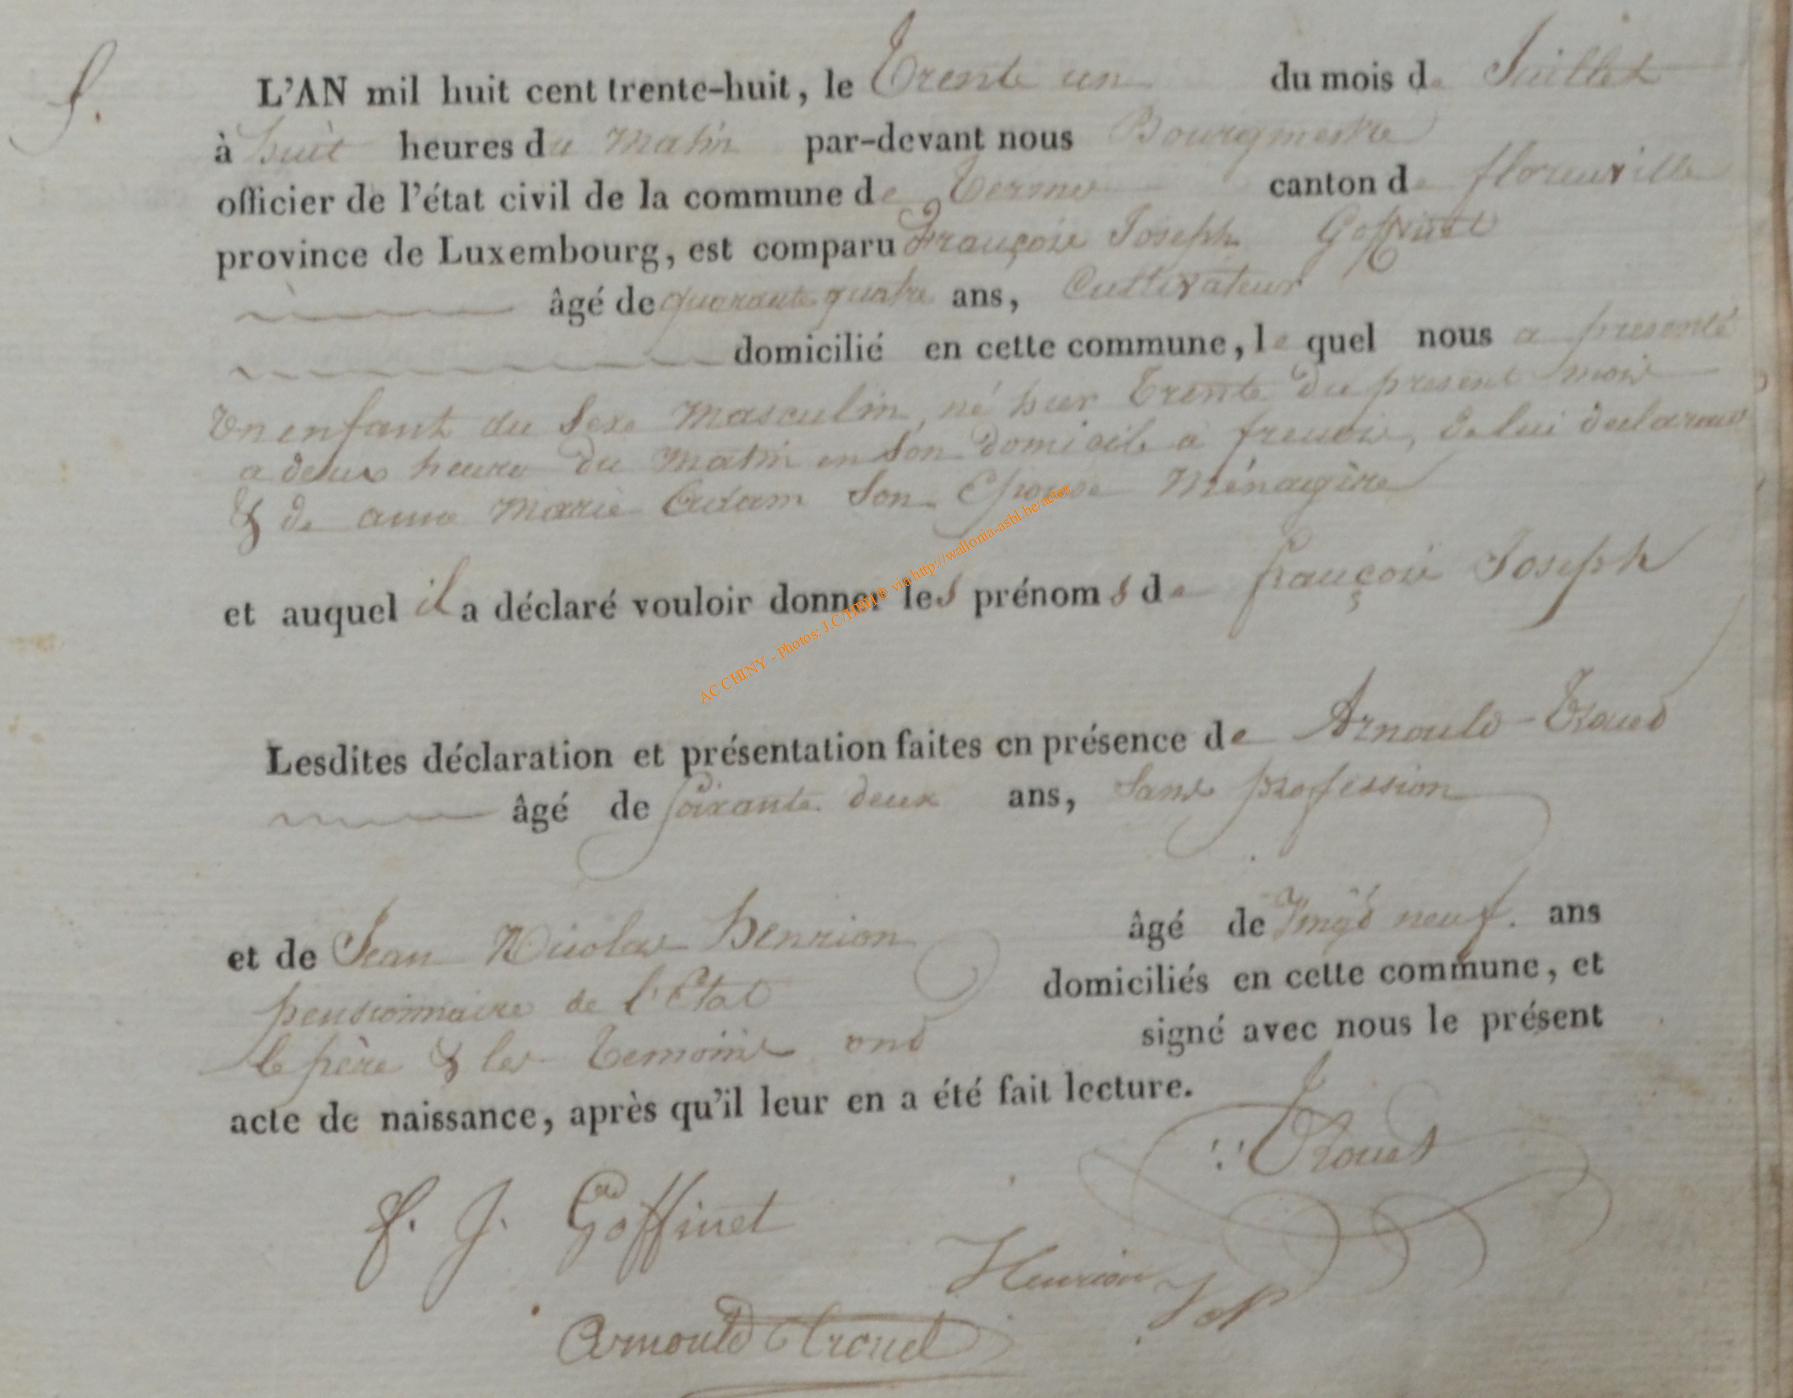 f.
L'AN mil huit cent trente-huit, le Trente un du mois de Juillet
à huit heures du Matin par-devant nous Bourgmestre
officier de l'état civil de la commune de Termes canton de florenville
province de Luxembourg, est comparu François Joseph Goffinet
âgé de quarante quatre ans, Cultivateur
domicilié en cette commune, le quel nous a présenté
Un enfant du Sexe Masculin, né hier Trente du présent mois
a deux heure du Matin en Son domicile a frenois, de lui declarant
& de anne Marie Adam Son Epouse Ménagère
et auquel il a déclaré vouloir donner les prénoms de françois Joseph
Lesdites déclaration et présentation faites en présence de Arnould Troued
âgé de Soixante deux ans, Sans profession
et de Jean Nicolas henrion âgé de Vingt neuf. ans
pensionnaire de l'Etat domiciliés en cette commune, et
le père & les Temoins ond signé avec nous le présent
acte de naissance, après qu'il leur en a été fait lecture.
Troued
f. J. Goffinet
Henrion JN
Arnould Troued
AC CHINY - Photos: J.C. via http://wallonia-asbl.be/actes